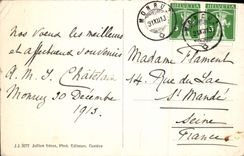 MONRUZ
31.XII.13
HELVETIA
HELVETIA
Nos vœux les meilleurs
et affectueux souvenirs
A. M. J. Châtelain
Monruz 30 Décembre
1913.
Madame Flament
14 Rue du Lac
St Mandé
Seine
France
J.J. Jullien frères, Phot. Editeurs, Genève